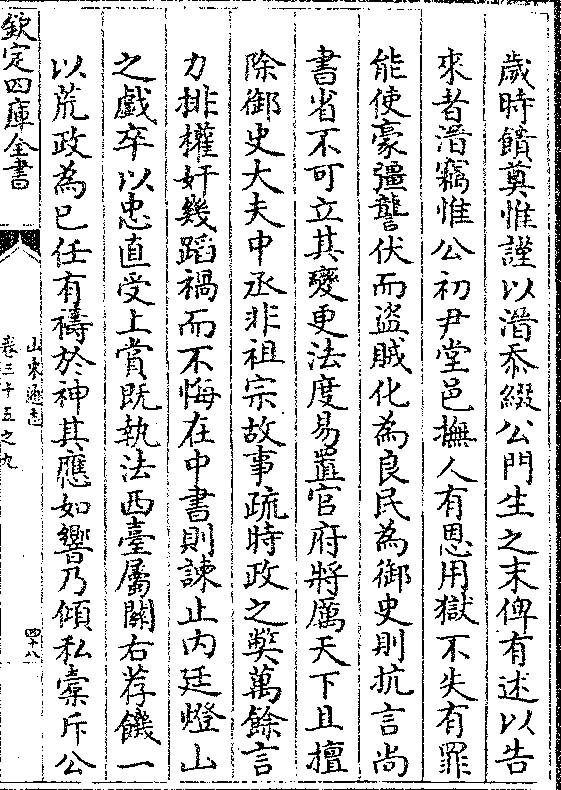 歲時饋奠惟謹以潛忝綴公門生之末俾有述以告
來者潛竊惟公初尹堂邑撫人有恩用獄不失有罪
能使豪彊讋伏而盜賊化為良民為御史則抗言尚
書省不可立其變更法度易置官府將厲天下且擅
除御史大夫中丞非祖宗故事疏時政之獘萬餘言
力排權奸幾蹈禍而不悔在中書則諫止内廷燈山
之戲卒以忠直受上賞既執法西臺屬闗右荐饑一
以荒政為已任有禱於神其應如響乃傾私橐斥公
欽定四庫全書
山東通志
卷三十五之九
四十八